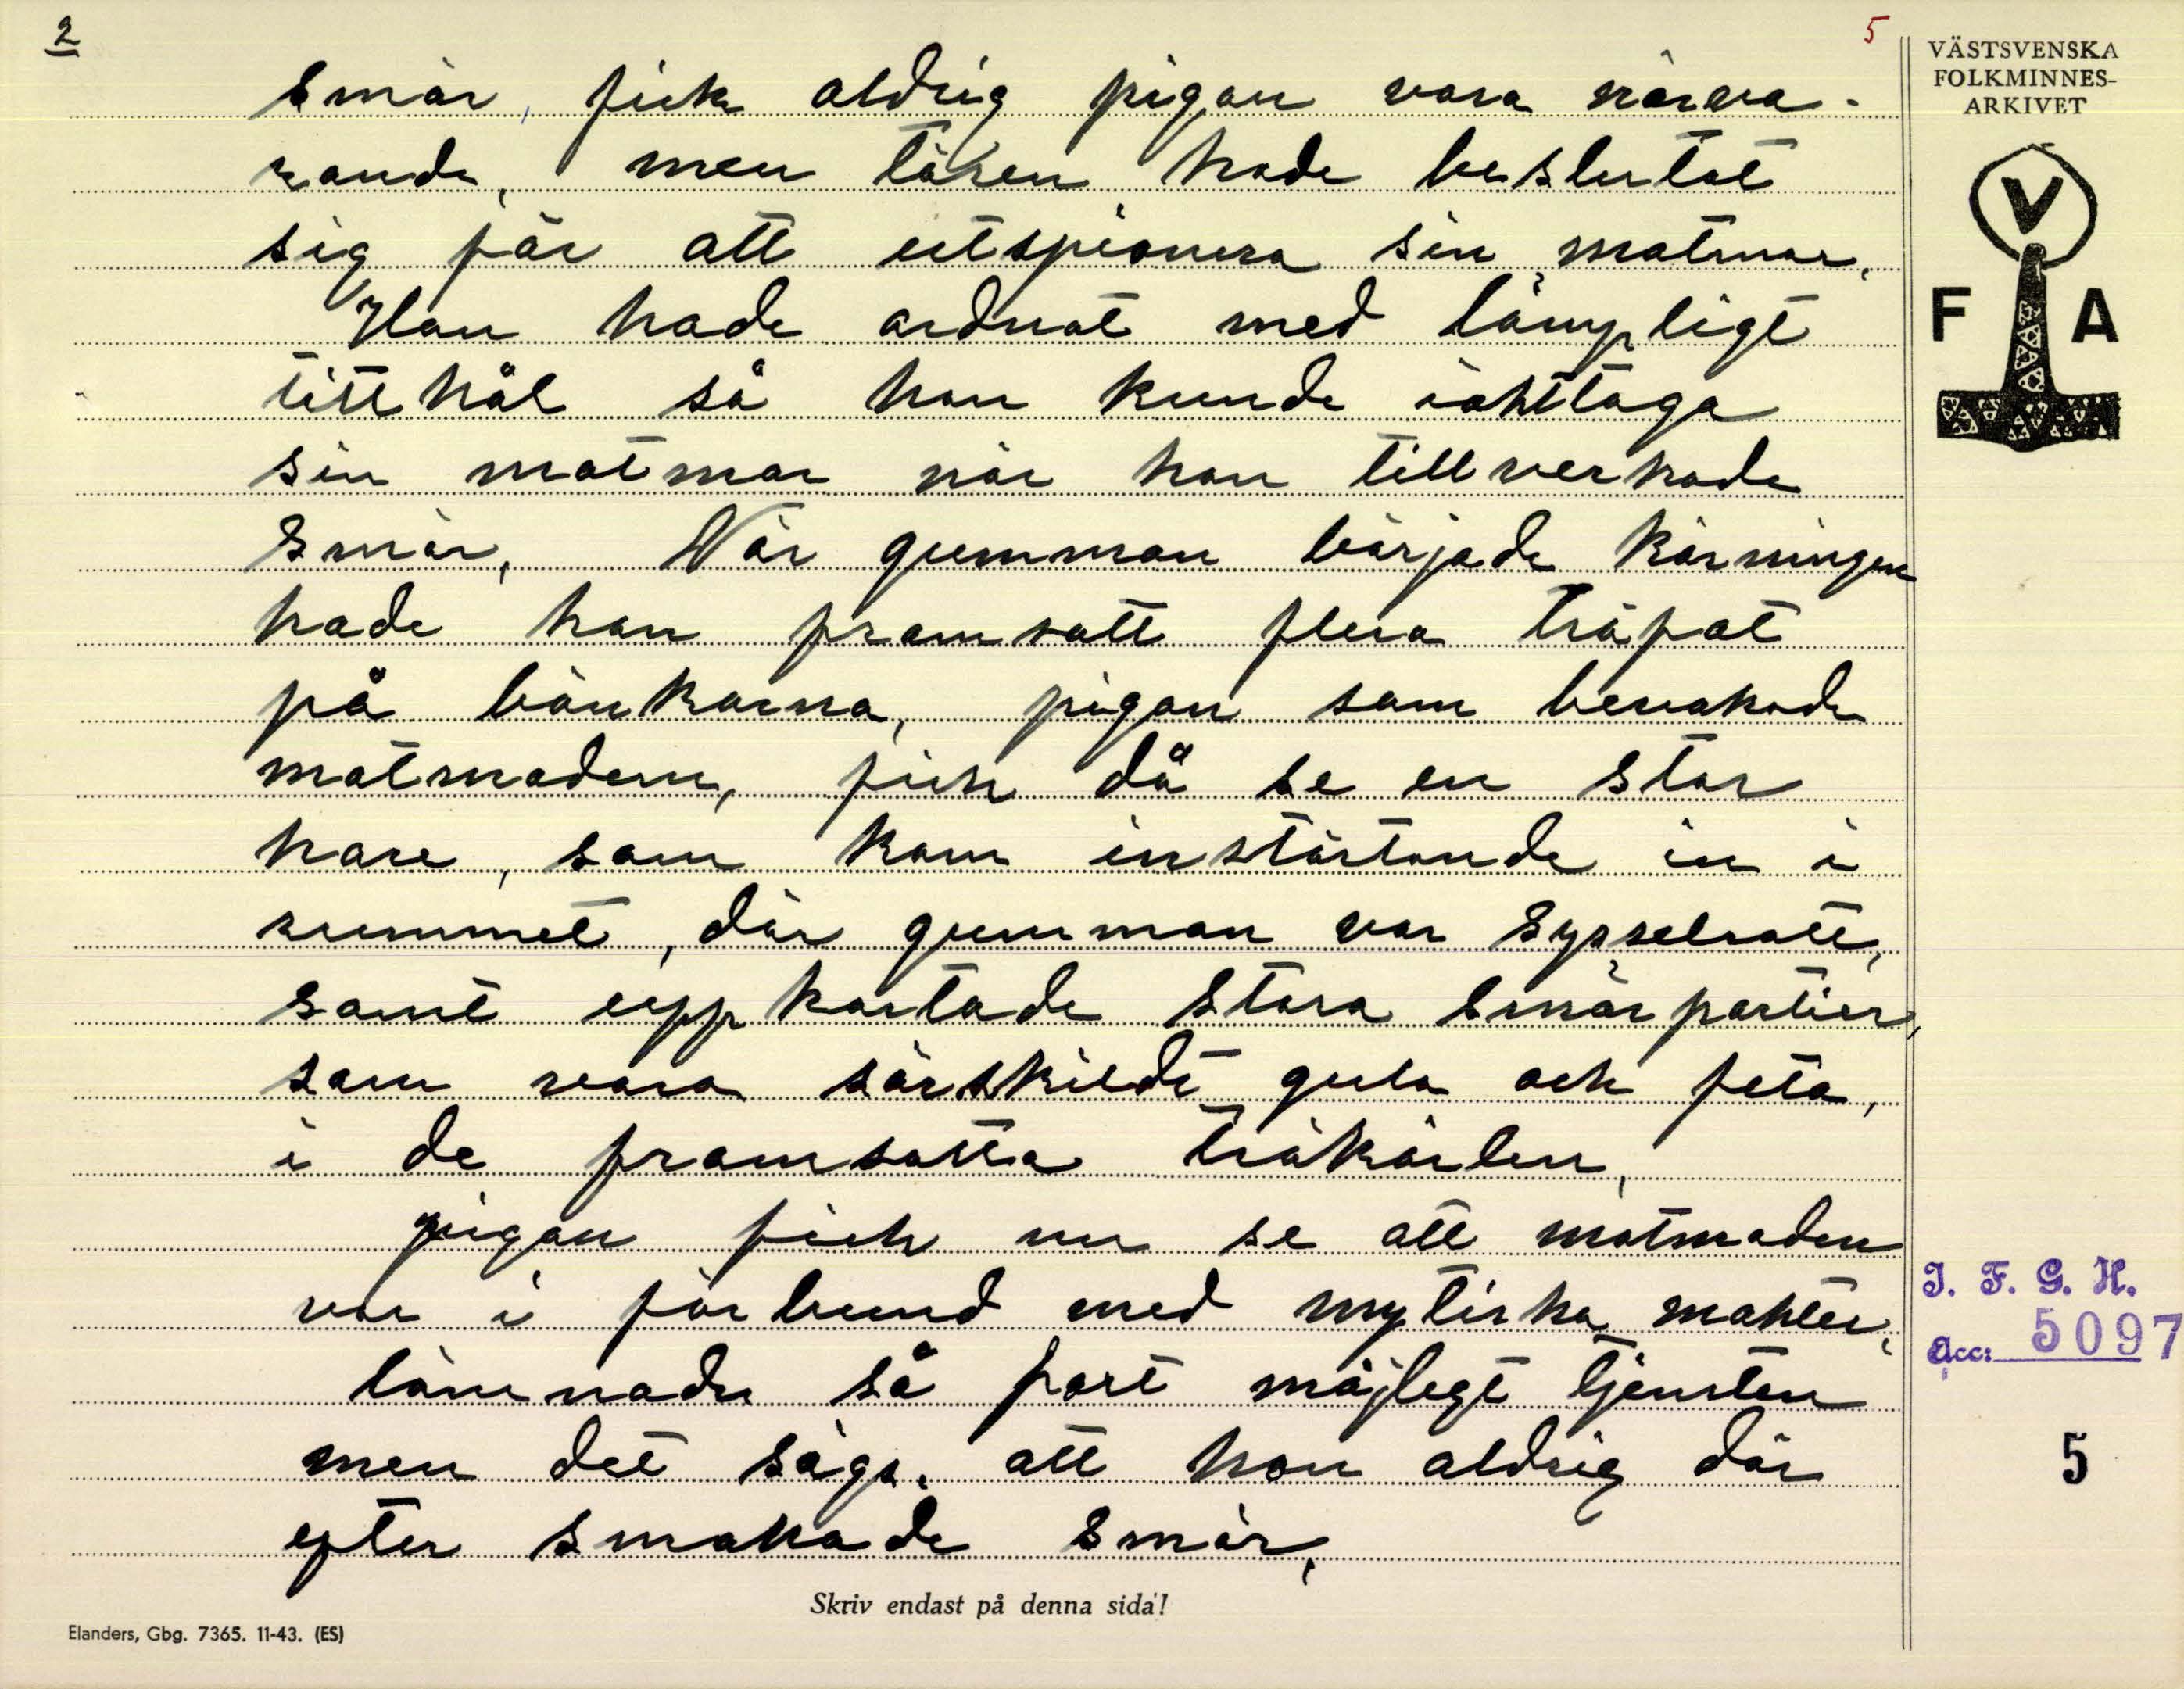 2
5
smör, fick aldrig pigan vara närva-
rande, men tösen hade beslutat
sig för att utspionera sin matmor,
Hon hade ordnat med lämpligt
titthål så hon kunde iakttaga
sin matmor när hon tillverkade
smör, När gumman började kärningen
hade hon framsatt flera träfat
på bänkarna, pigan som bevakade
matmodern, fick då se en stor
hare, som kom instörtande in i
rummet, där gumman var sysselsatt,
samt uppkastade stora smörpartier,
som voro särskildt gula och feta,
i de framsatta träkärlen,
pigan fick nu se att matmodern
var i förbund med mytiska makter,
lämnade så fort möjligt tjensten
men det säges. att hon aldrig där
efter smakade smör,
Skriv endast på denna sida!
Elanders, Gbg. 7365. 11-43. (ES)
VÄSTSVENSKA
FOLKMINNES-
ARKIVET
V
F A
I. F. G. H.
Acc: 5097
5